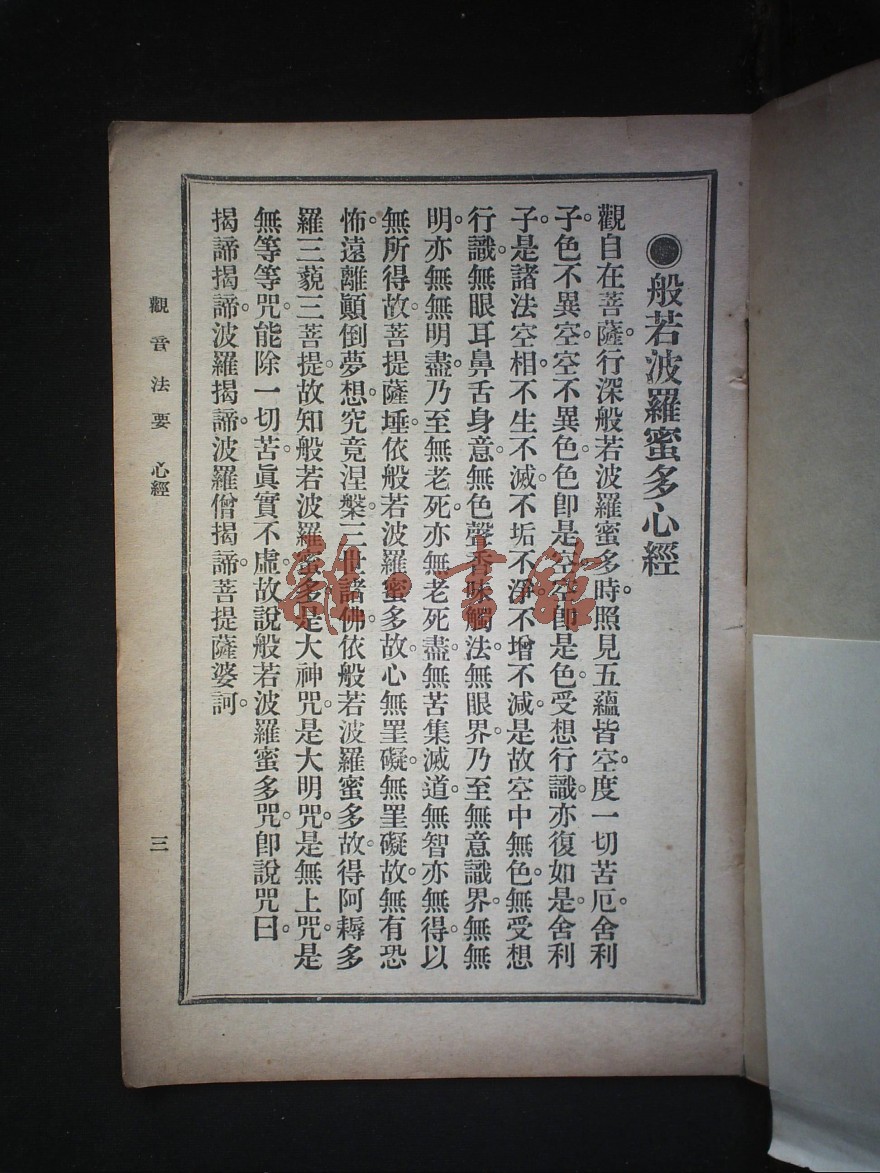 ●般若波羅蜜多心經
觀自在菩薩。行深般若波羅蜜多時。照見五蘊皆空。度一切苦厄。舍利
子。色不異空。空不異色。色卽是空。空卽是色。受想行識。亦復如是。舍利
子。是諸法空相。不生不滅。不垢不淨。不增不減。是故空中無色。無受想
行識。無眼耳鼻舌身意。無色聲香味觸法。無眼界。乃至無意識界。無無
明。亦無無明盡。乃至無老死。亦無老死盡。無苦集滅道。無智亦無得。以
無所得故。菩提薩埵。依般若波羅蜜多故。心無罣礙。無罣礙故。無有恐
怖。遠離顚倒夢想。究竟涅槃。三世諸佛。依般若波羅蜜多故。得阿耨多
羅三藐三菩提。故知般若波羅蜜多。是大神咒。是大明咒。是無上咒。是
無等等咒。能除一切苦。眞實不虛。故說般若波羅蜜多咒。卽說咒曰。
揭諦揭諦。波羅揭諦。波羅僧揭諦。菩提薩婆訶。
觀音法要 心經 三